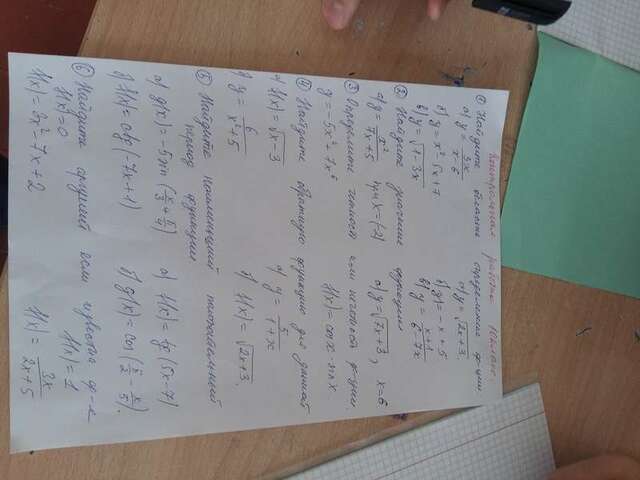 Контрольная работа 10 класс.
① Найдите область определения функции
а) y = 3x/(x-6) а) y = √(2x+3)
б) y = x² - 5x + 7 б) y = -x + 5
в) y = √(1-3x) в) y = (x+1)/(6-7x)
② Найдите значение функции
а) y = x²/(x+5) при x = (-2) а) y = √(7x+3), x = 6
③ Определите четность или нечетность ф-ции
y = -5x² + 7x⁶ f(x) = cos x · sin x
④ Найдите обратную функцию для данной
а) f(x) = √(x-3) а) y = 5/(1+x)
б) y = 6/(x+5) б) f(x) = √(2x+3).
⑤ Найдите наименьший положительный
период функции
а) g(x) = -5 sin (x/3 + π/4) а) f(x) = tg (5x-7)
б) f(x) = ctg (-7x+1) б) g(x) = cos (x/2 - π/5).
⑥ Найдите аргумент если известно ф-я
f(x) = 0 f(x) = 1
f(x) = 3x² - 7x + 2 f(x) = 3x/(2x+5)